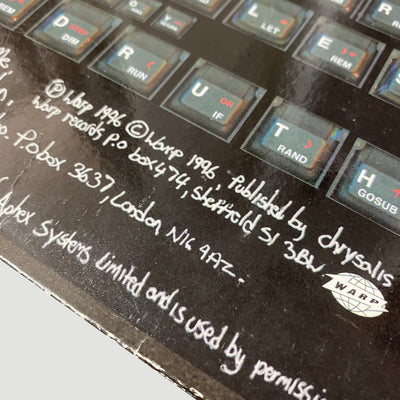 L
LET
D
STEP
DIM
R
<
RUN
E
>=
REM
S
U
OR
IF
T
>
RAND
H
GOSUB
℗ Warp 1996 © Warp 1996 Published by chrysalis
Warp records P.O box 474, Sheffield S1 3BW
P.O box 3637, London NIC 9AZ.
Aphex Systems Limited and is used by permission
WARP